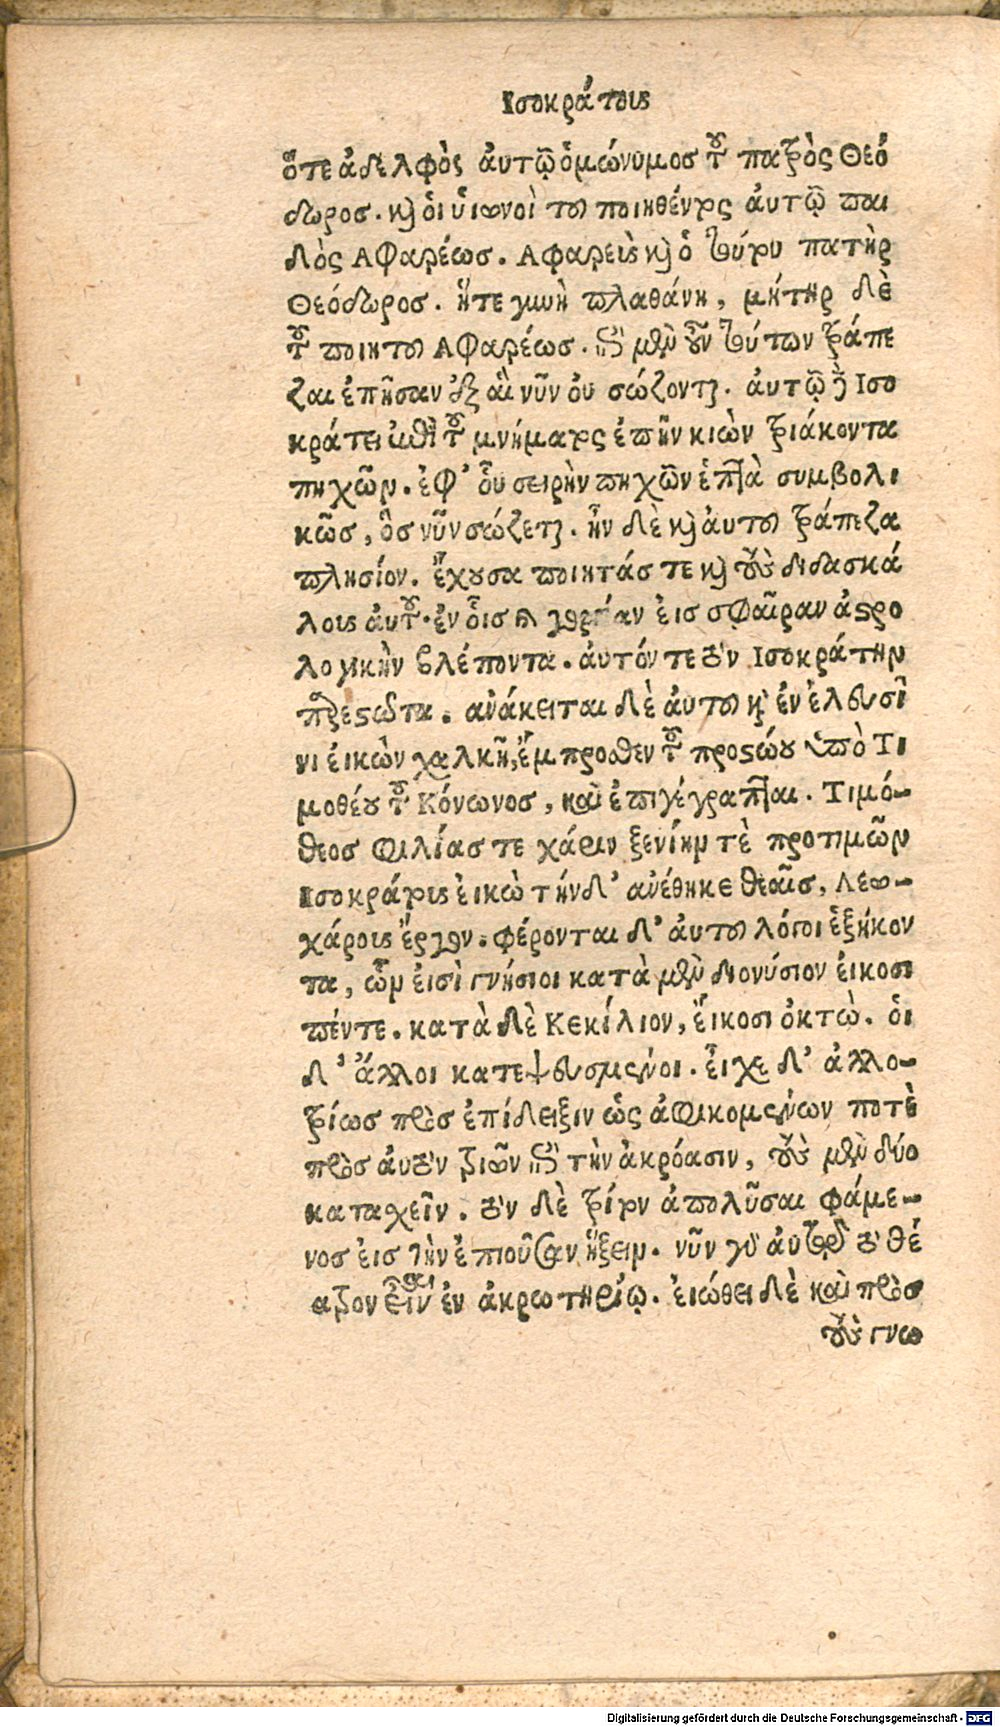 Ισοκράτους
ὅτε ἀδελφὸς ἀυτῷ ὁμώνυμος τοῦ πατρὸς Θεό
δωρος. καὶ ὁι ὑιωνοὶ του ποιηθέντος ἀυτῷ παι
δὸς Αφαρέως. Αφαρεὺς καὶ ὁ τούτου πατὴρ
Θεόδωρος. ἥτε γυνὴ πλαθάνη, μήτηρ δὲ
τοῦ ποιητου Αφαρέως. ἐπὶ μὲν οὖν τούτων τράπε
ζαι ἐπῆσαν ἓξ ἁὶ νῦν ὀυ σώζονται. ἀυτῷ δὲ Ισο
κράτει ἐπὶ τοῦ μνήματος ἐπῆν κιὼν τριάκοντα
πηχῶν. ἐφ' ὗ σειρὴν πηχῶν ἑπτὰ συμβολι
κῶς, ὃς νῦν σώζεται. ἦν δὲ καὶ ἀυτου τράπεζα
πλησίον. ἔχουσα ποιητάς τε καὶ τοὺς διδασκά
λους ἀυτοῦ. ἐν ὗἱς γοργίαν ἐις σφαῖραν ἀστρο
λογικὴν βλέποντα. ἀυτόν τε τὸν Ισοκράτην
παρεστῶτα. ἀνάκειται δὲ ἀυτου καὶ ἐν ἐλευσῖ
νι ἐικὼν χαλκῆ, ἔμπροσθεν τοῦ προστώου ὑπὸ Τι
μοθέου τοῦ Κόνωνος, καὶ ἐπιγέγραπται. Τιμό-
θεος φιλίας τε χάριν ξενίην τὲ προτιμῶν
Ισοκράτους ἐικὼ τήνδ' ἀνέθηκε θεαῖς, Λεω-
χάρους ἔργον. φέρονται δ' ἀυτου λόγοι ἑξήκον
τα, ὧν ἐισὶ γνήσιοι κατὰ μὲν διονύσιον ἐικοσι
πέντε. κατὰ δὲ Κεκίλιον, ἔικοσι ὀκτὼ. ὁι
δ' ἄλλοι κατεψευσμένοι. ἔιχε δ' ἀλλο-
τρίως πρὸς ἐπίδειξιν ὡς ἀφικομένων ποτὲ
πρὸς ἀυτὸν τριῶν ἐπὶ τὴν ἀκρόασιν, τοὺς μὲν δύο
κατασχεῖν. τὸν δὲ τρίτον ἀπολῦσαι φάμε-
νος ἐις τὴν ἐπιοῦσαν ἥξειν. νῦν γὰρ ἀυτῷ τὸ θέ
ατρον εἶναι ἐν ἀκρωτηρίῳ. ἐιώθει δὲ καὶ πρὸς
τοὺς γνω
Digitalisierung gefördert durch die Deutsche Forschungsgemeinschaft - DFG